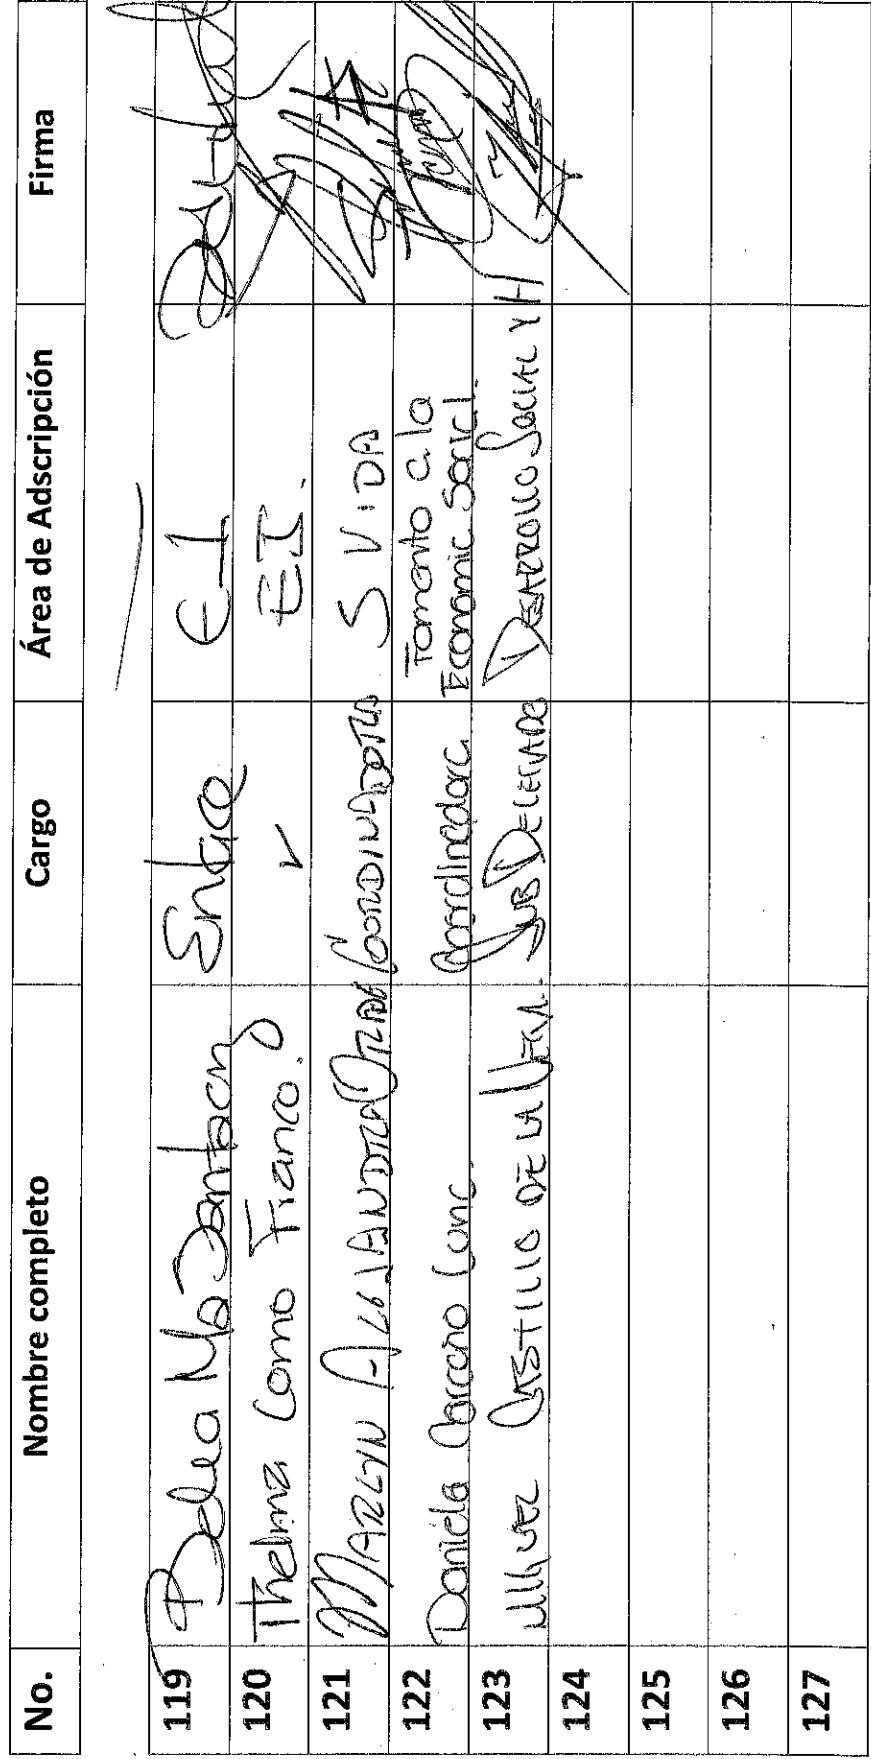 No. Nombre completo Cargo Área de Adscripción Firma
119 E I
120 Thelma Como Franco. ✓ E I.
121 MARLYN ALEJANDRA COORDINADORA S VIDA
122 Daniela Carreño Coordinadora Fomento a la
Economic Social.
123 MIGUEL CASTILLO DE LA SUB DELEGADO DESARROLLO SOCIAL Y H
124
125
126
127